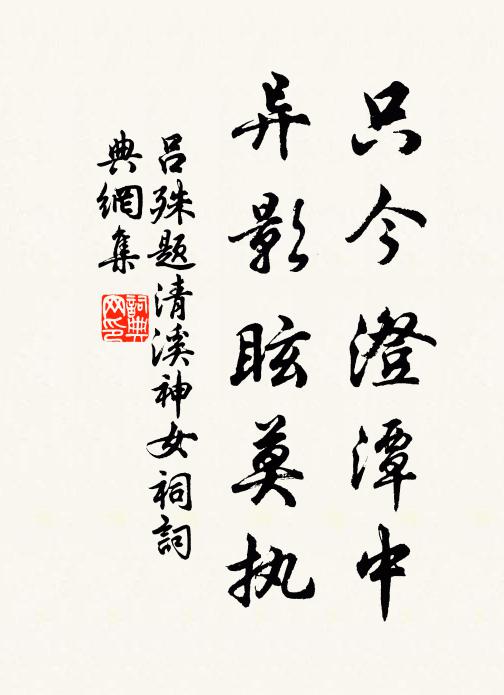 只今澄潭中
异影眩莫执
吕殊题清溪神女祠詞
典網集
詞典
网印